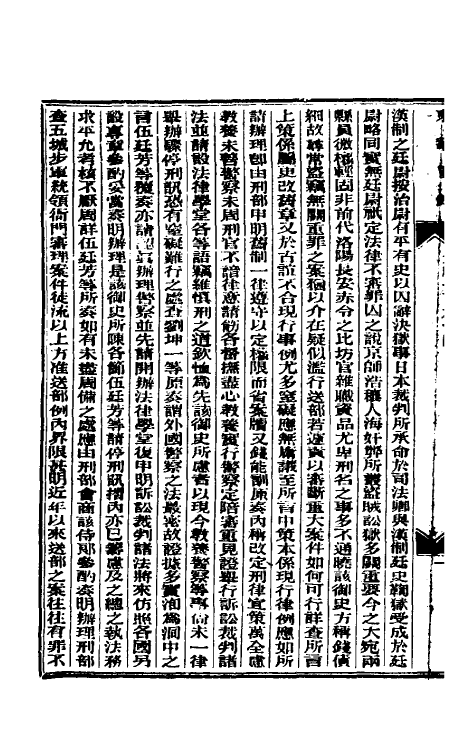 漢制之廷尉按治尉有平有史以囚辭決獄事日本裁判所承命於司法卿與漢制廷史鞫獄受成於廷
尉略同實無廷尉獻定法律不審罪囚之說京師浩穰人海奸弊所叢盜賊訟獄多關重要今之大宛兩
縣員微權輕固非前代洛陽長安赤令之比坊官雜職資品尤卑刑名之事多不通曉該御史方稱錢債
細故尋常盜竊無關重罪之案猶以介在疑似濫行送部若遽責以審斷重大案件如何可行詳查所言
上策係屬更改舊章又於古誼不合現行事例尤多窒礙應無庸議至所言中策本係現行律例應如所
請辦理卽由刑部申明舊制一律遵守以定權限而省案牘又錢能訓原奏內稱改定刑律宜策萬全慮
教養未普警察未周刑官不諳律意請飭各督撫盡心教養實行警察定陪審重見證舉行訴訟裁判諸
法並請設法律學堂各等語竊維愼刑之道欽恤爲先該御史所慮者以現今教養警察等事尙未一律
舉辦驟停刑訊恐有窒礙難行之處查劉坤一等原奏謂外國警察之法最密故證據多實洵爲洞中之
言伍廷芳等覆奏亦請 辦理警察並先請開辦法律學堂復申明訴訟裁判諸法將來仿照各國另
設專章參酌妥當奏明辦理是該御史所陳各節伍廷芳等請停刑訊摺內亦已籌慮及之總之執法務
求平允考核不厭周詳伍廷芳等所奏如有未盡周備之處應由刑部會商該侍郎參酌奏明辦理刑部
查五城步軍統領衙門審理案件徒流以上方准送部例內界限甚明近年以來送部之案往往有罪不